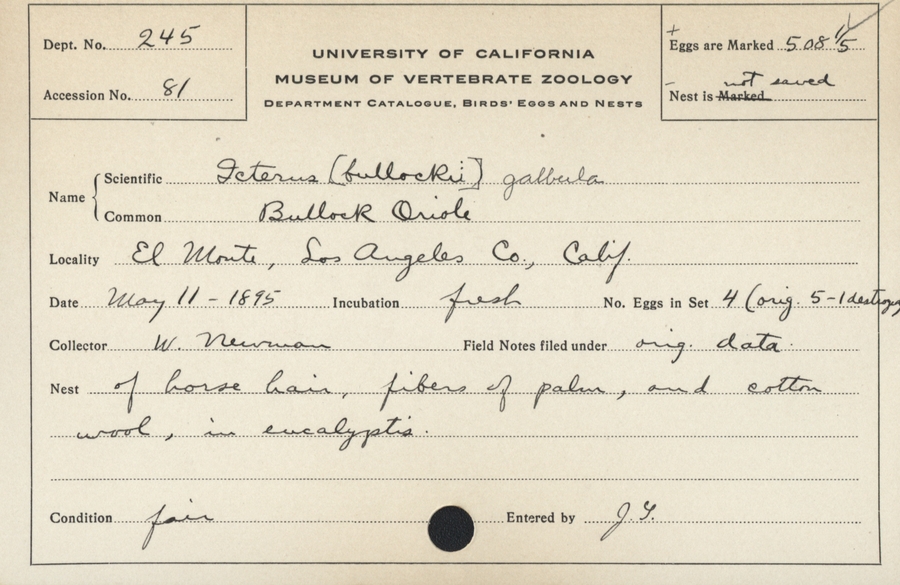 Dept. No. 245
Accession No. 81
UNIVERSITY OF CALIFORNIA
MUSEUM OF VERTEBRATE ZOOLOGY
DEPARTMENT CATALOGUE, BIRDS' EGGS AND NESTS
+
Eggs are Marked 508 1/5
- not saved
Nest is Marked
Name
Scientific Icterus [bullockii] galbula
Common Bullock Oriole
Locality El Monte, Los Angeles Co., Calif.
Date May 11 - 1895 Incubation fresh No. Eggs in Set 4 (orig. 5-1 destroyed
Collector W. Newman Field Notes filed under orig. data.
Nest of horse hair, fibers of palm, and cotton
wool, in eucalyptis.
Condition fair Entered by